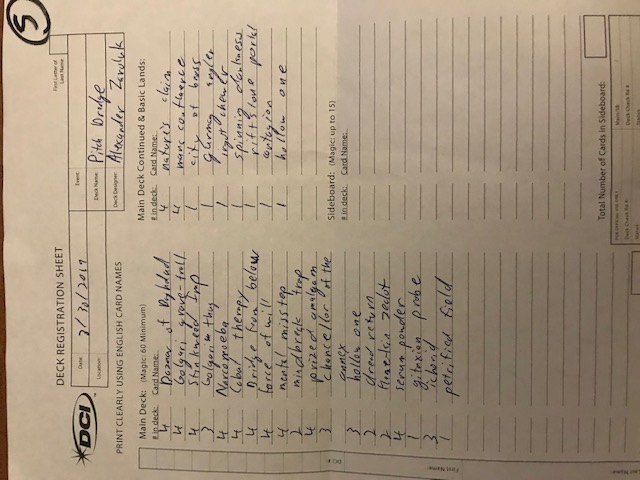 5
DECK REGISTRATION SHEET
First Letter of
Last Name
DCI
Date: 3/30/2019
Event:
Location:
Deck Name: Pitch Dredge
Deck Designer: Alexander Zavoluk
PRINT CLEARLY USING ENGLISH CARD NAMES
Main Deck: (Magic: 60 Minimum)
# in deck: Card Name:
4 Bazaar of Baghdad
4 Golgari grave-troll
4 Stinkweed Imp
3 Golgari thug
4 Narcomoeba
4 Cabal therapy
4 Bridge from below
4 force of will
4 mental misstep
2 mindbreak trap
4 prized amalgam
3 chancellor of the
annex
3 hollow one
2 dread return
2 zealot
4 serum powder
1 gitaxian probe
3 ichorid
1 petrified field
Main Deck Continued & Basic Lands:
# in deck: Card Name:
4 nature's claim
4 mana confluence
1 city of brass
1 gurmag angler
1 ingot chewer
1 spinning darkness
1 riftstone portal
1 contagion
1 hollow one
Sideboard: (Magic: up to 15)
# in deck: Card Name:
Total Number of Cards in Sideboard:
FOR OFFICIAL USE ONLY
Main/SB:
Deck Check Rd #
Deck Check Rd #
Status:
Status:
DCI #:
First Name:
Last Name: